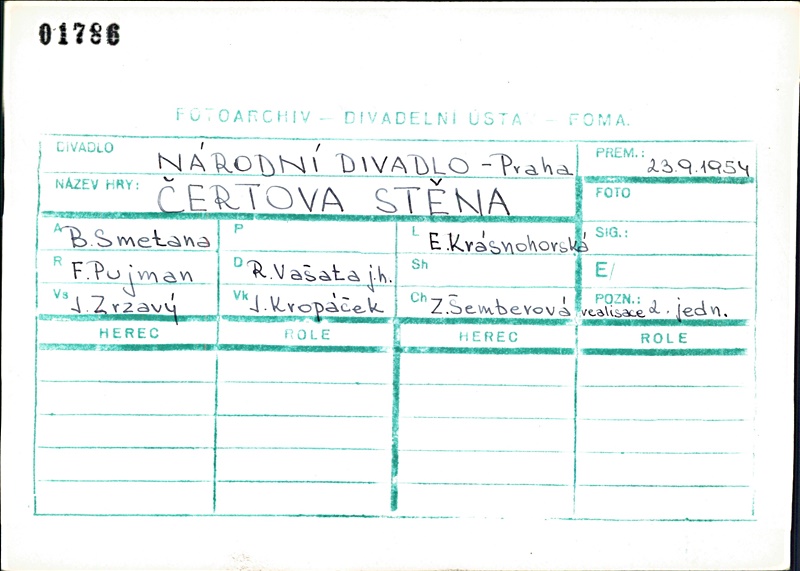 01786
FOTOARCHIV – DIVADELNÍ ÚSTA – FOMA.
DIVADLO NÁRODNÍ DIVADLO – Praha PREM.: 23.9.1954
NÁZEV HRY: ČERTOVA STĚNA FOTO
A B. Smetana P L E. Krásnohorská SIG.:
R F. Pujman D R. Vašata j.h. Sh E/
Vs J. Zrzavý Vk J. Kropáček Ch Z. Šemberová POZN.: realisace 2. jedn.
HEREC ROLE HEREC ROLE